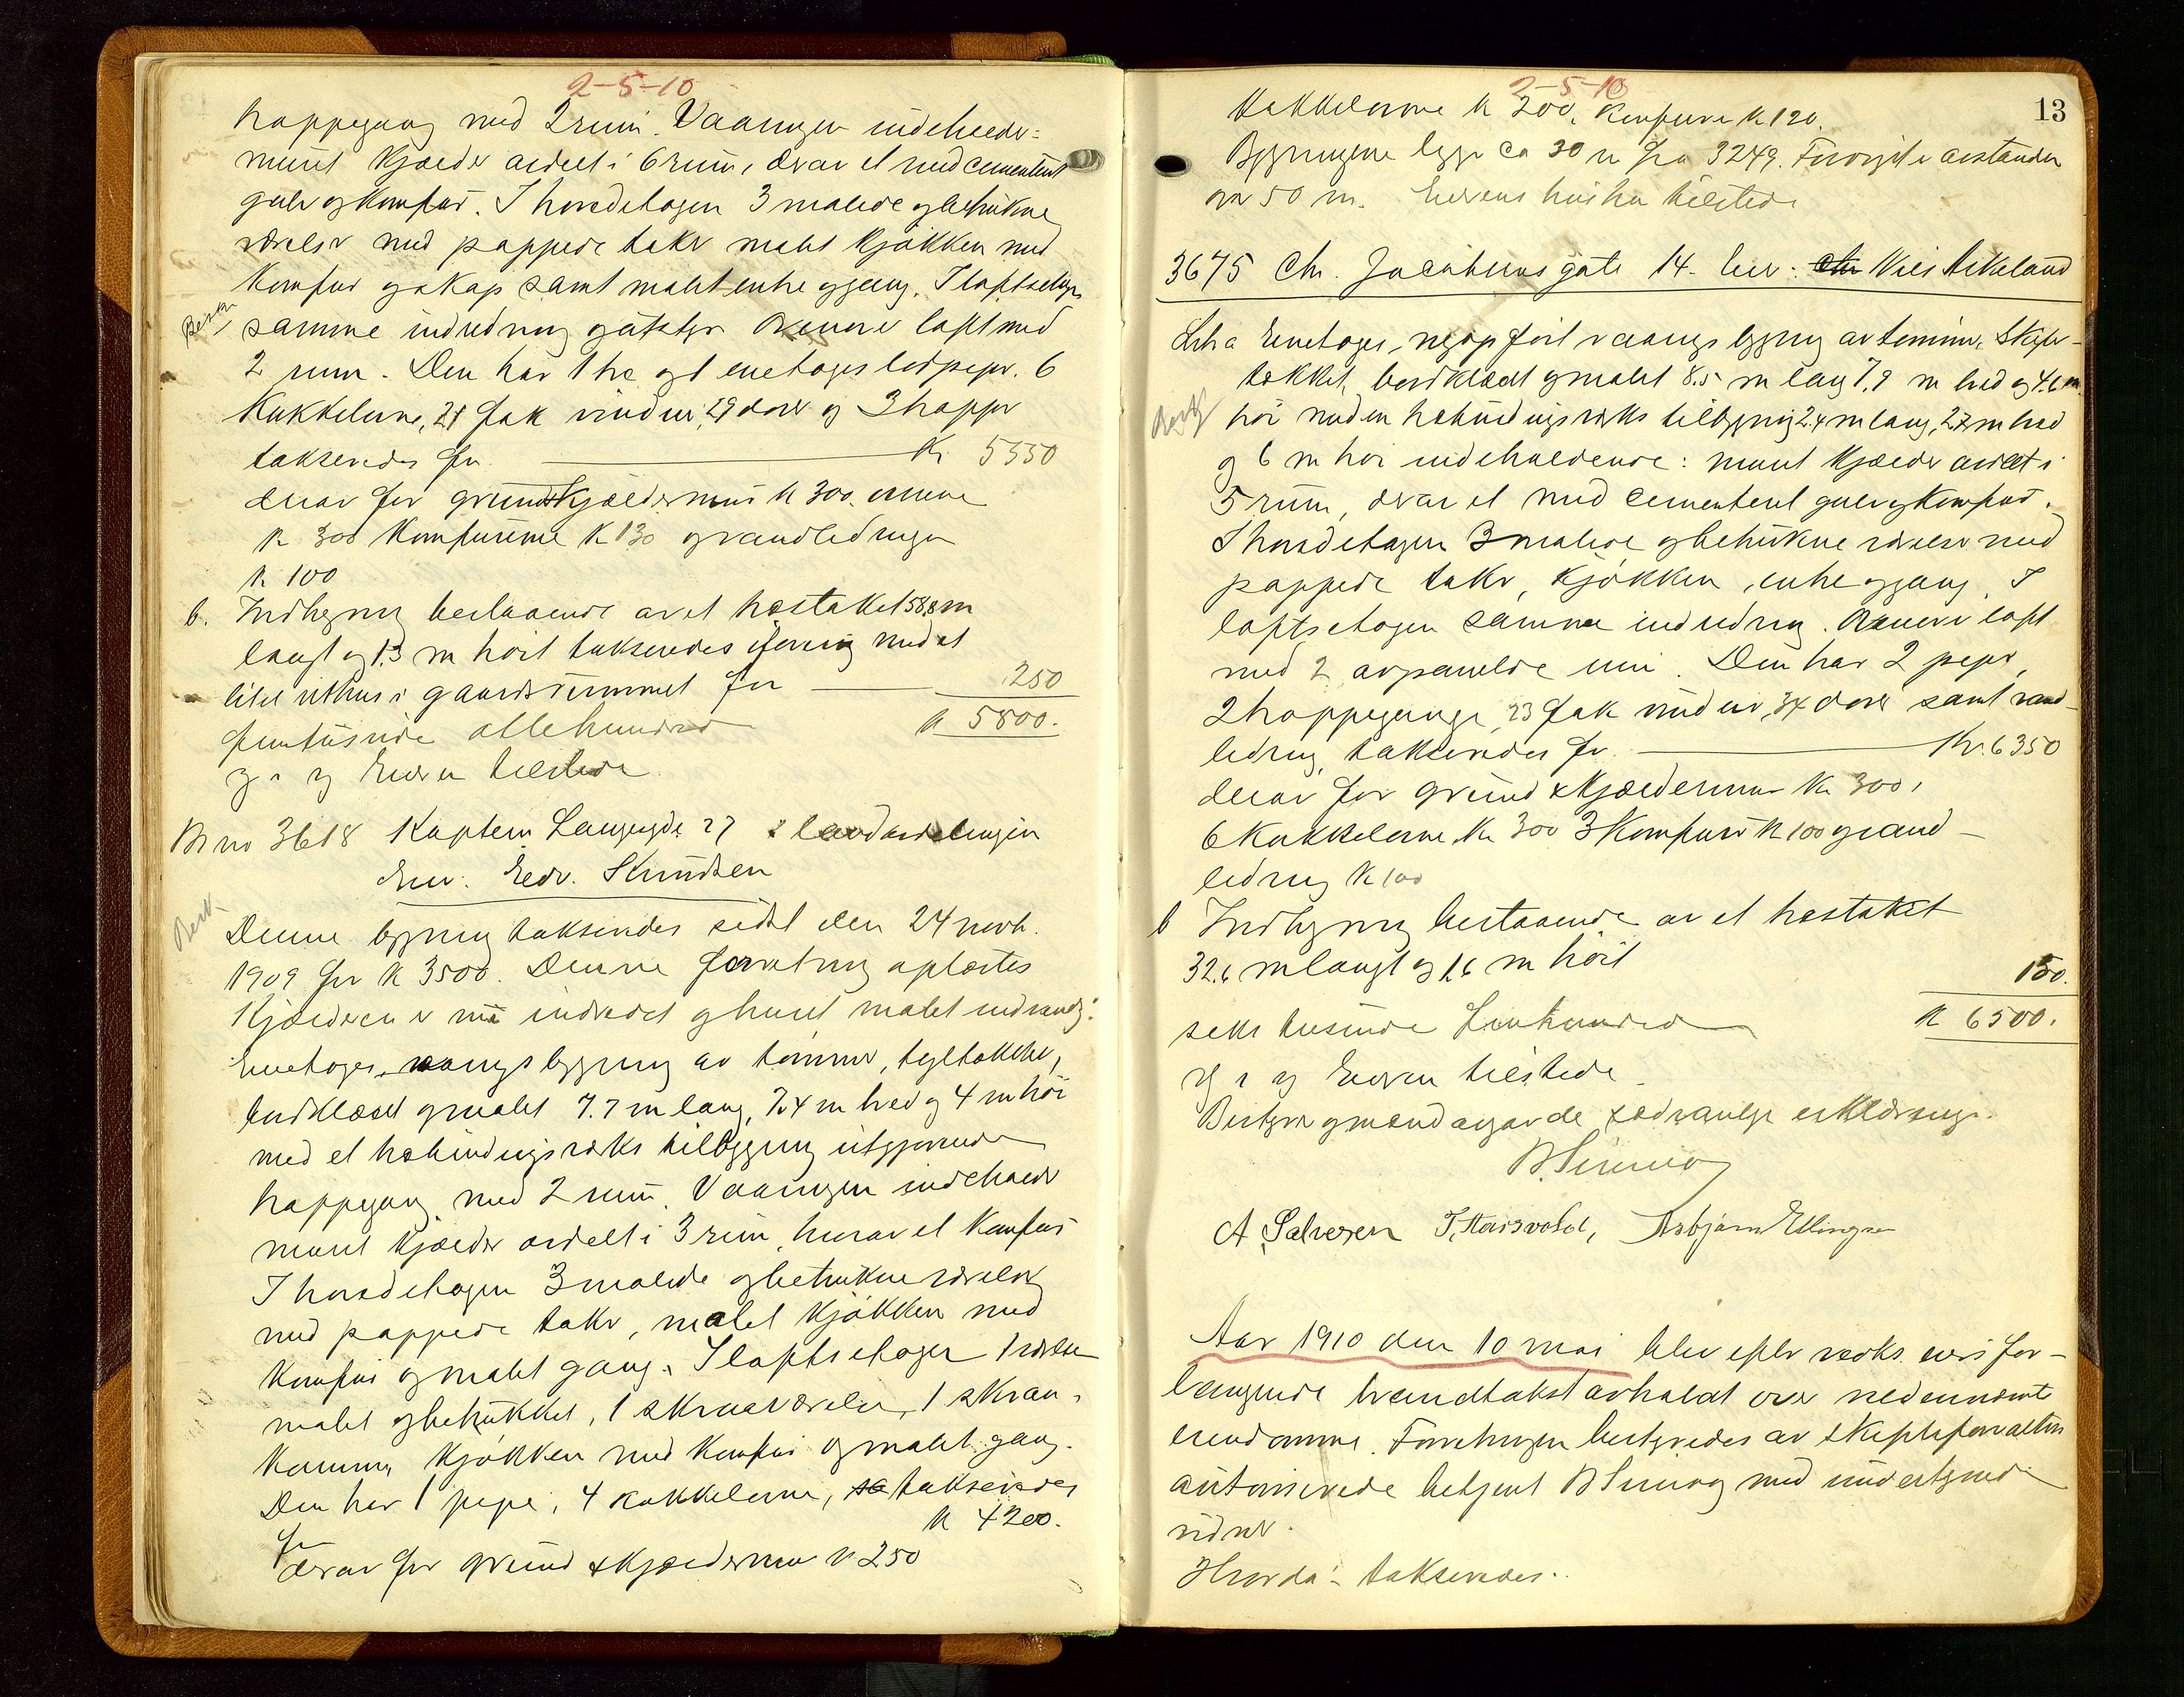 2-5-10
trappegang med 2 rum. Vaaningen indeholder:
muret kjælder avdelt i 6 rum, derav et med cementeret
gulv og komfur. I hovedetagen 3 malede og betrukne
værelser med pappede takr malet kjøkken med
komfur og skap samt malet entre og gang. I loftsetagen
samme indredning og
2 rum. Den har 1 tre og 1 enetages
6
kakkelovne, 21 fak vinduer, 29 dører og 3 trapper
takseredes for Kr 5550
derav for grund & kjældermur k 300. ovnene
k 300 komfurerne k 130 og vandledningen
k 100
b. Indhegning bestaaende av et træstaket 58,8 m
langt og 1.3 m høit takseredes i forening med et
litet uthus i gaardsrummet for 250
femtusinde ottehundred k 5800.
Eieren tilstede
Br no 3618 Kaptein Langesgt. 27 & landavdelingen
Eier. Edv. Knudsen
Denne bygning takseredes sidst den 24 novb.
1909 for k 3500. Denne forretning oplæstes
Kjælderen er nu indredet og huset malet indvendig:
Enetages vaaningsbygning av tømmer, tegltækket,
bordklædt og malet 7.7 m lang, 7.4 m bred og 4 m høi
med et utbindingsverks tilbygning utgjørende
trappegang med 2 rum. Vaaningen indeholder
muret kjælder avdelt i 3 rum, hvorav et komfur
I hovedetagen 3 malede og betrukne værelser
med pappede takr, malet kjøkken med
komfur og malet gang. I loftsetagen 1 værelse
malet og betrukket, 1 skraaværelse, 1 skraa-
kammer, kjøkken med komfur og malet gang.
Den har 1 pipe, 4 kakkelovne, takseredes
for k 4200.
derav for grund & kjældermur k 250
2-5-10
13
kakkelovne k 200, komfurer k 120.
Bygningerne ligger ca 30 m fra 3249. Forøvrig er avstanden
over 50 m. Eierens hustru tilstede
3675 Chr. Jacobsens gate 14. Eier: Nils Askeland
Litra Enetages, nyopført vaaningsbygning av tømmer, skifer-
tækket, bordklædt og malet 8.5 m lang 7.9 m bred og 4.6 m
høi med en utbindingsverks tilbygning 2.4 m lang, 2.7 m bred
og 6 m høi indeholdende: muret kjælder avdelt i
5 rum, derav et med cementeret gulv og komfur.
I hovedetagen 3 malede og betrukne værelser med
pappede takr, kjøkken, entre og gang. I
loftsetagen samme indredning. Øverst loft
med 2 avpanelede rum. Den har 2 piper,
2 trappegange, 23 fak vinduer, 34 dører samt vand-
ledning, takseredes for Kr. 6350
derav for grund & kjældermur k 300,
6 kakkelovne k 300 3 komfurer k 100 og vand-
ledning k 100
b Indhegning bestaaende av et træstaket
32.6 m langt og 1,6 m høit 150.
seks tusinde femhundred k 6500.
Eieren tilstede.
Bestyrer og mænd avgav de sædvanlige erklæringer.
A. Salvesen Asbjørn Ellingsen
Aar 1910 den 10 mai blev efter vedk. eiers for-
langende brandtakst avholdt over nedennævnte
eiendomme. Forretningen bestyredes av skifteforvalterens
autoriserede betjent med undertegnede
vidner.
Hvorda: takseredes: